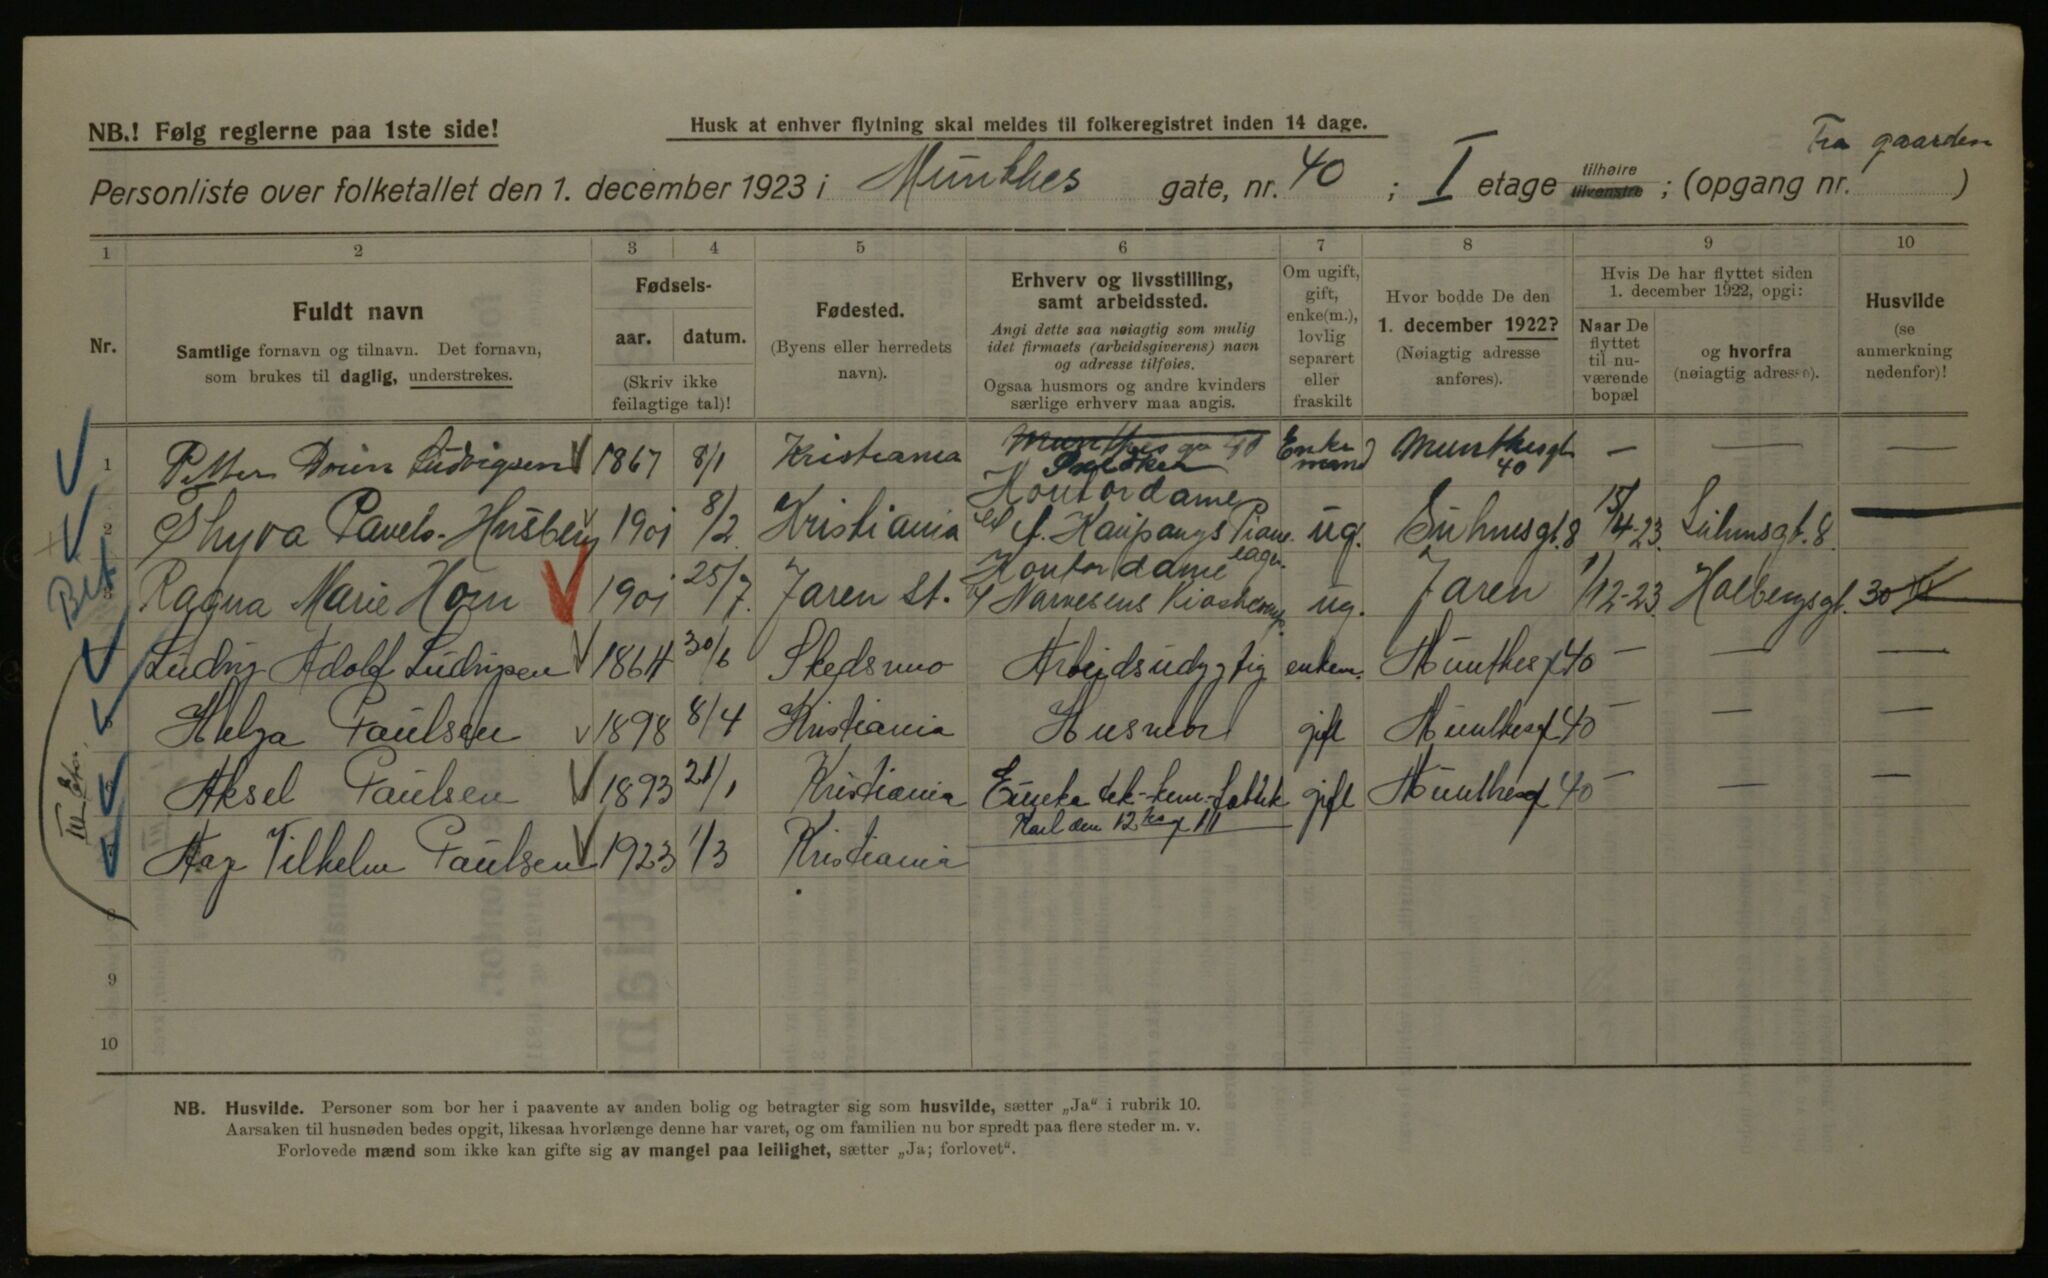 NB.! Følg reglerne paa 1ste side!
Husk at enhver flytning skal meldes til folkeregistret inden 14 dage.
Fra gaarden
Personliste over folketallet den 1. december 1923 i Munthes gate, nr. 40 ; I etage tilhøire tilvenstre ; (opgang nr. )
1 2 3 4 5 6 7 8 9 10
Nr.
Fuldt navn
Samtlige fornavn og tilnavn. Det fornavn,
som brukes til daglig, understrekes.
Fødsels-
aar. datum.
(Skriv ikke
feilagtige tal)!
Fødested.
(Byens eller herredets
navn).
Erhverv og livsstilling,
samt arbeidssted.
Angi dette saa nøiagtig som mulig
idet firmaets (arbeidsgiverens) navn
og adresse tilføies.
Ogsaa husmors og andre kvinders
særlige erhverv maa angis.
Om ugift,
gift,
enke(m.),
lovlig
separert
eller
fraskilt
Hvor bodde De den
1. december 1922?
(Nøiagtig adresse
anføres).
Hvis De har flyttet siden
1. december 1922, opgi:
Naar De
flyttet
til nu-
værende
bopæl
og hvorfra
(nøiagtig adresse).
Husvilde
(se
anmerkning
nedenfor)!
1 Petter Ludvigsen 1867 8/1 Kristiania Munthes ga 40 Enkemand Munthesgt 40 — — —
2 Thyra Pavels-Husberg 1901 8/2 Kristiania Kontordame f. Kaupangs Piano lager. ug. Suhmsgt. 8 15/4-23. Suhmsgt. 8. —
3 Ragna Marie Horn 1901 25/7. Jaren St. Kontordame Narvesens Kioskkomp. ug. Jaren 1/12-23 Holbergsgt. 30
Ludvig Adolf Ludvigsen 1864 30/6 Skedsmo Arbeidsudygtig enkem. Munthesg 40 — — —
5 Helga Paulsen 1898 8/4 Kristiania Husmor gift Munthesgt 40 — — —
6 Aksel Paulsen 1893 21/1 Kristiania Eureka tek-kem-fabrik gift Munthesgt 40 — — —
Karl den 12 11
7 Aage Vilhelm Paulsen 1923 1/3 Kristiania
8
9
10
Bet
III Etg.
NB. Husvilde. Personer som bor her i paavente av anden bolig og betragter sig som husvilde, sætter „Ja“ i rubrik 10.
Aarsaken til husnøden bedes opgit, likesaa hvorlænge denne har varet, og om familien nu bor spredt paa flere steder m. v.
Forlovede mænd som ikke kan gifte sig av mangel paa leilighet, sætter „Ja; forlovet“.